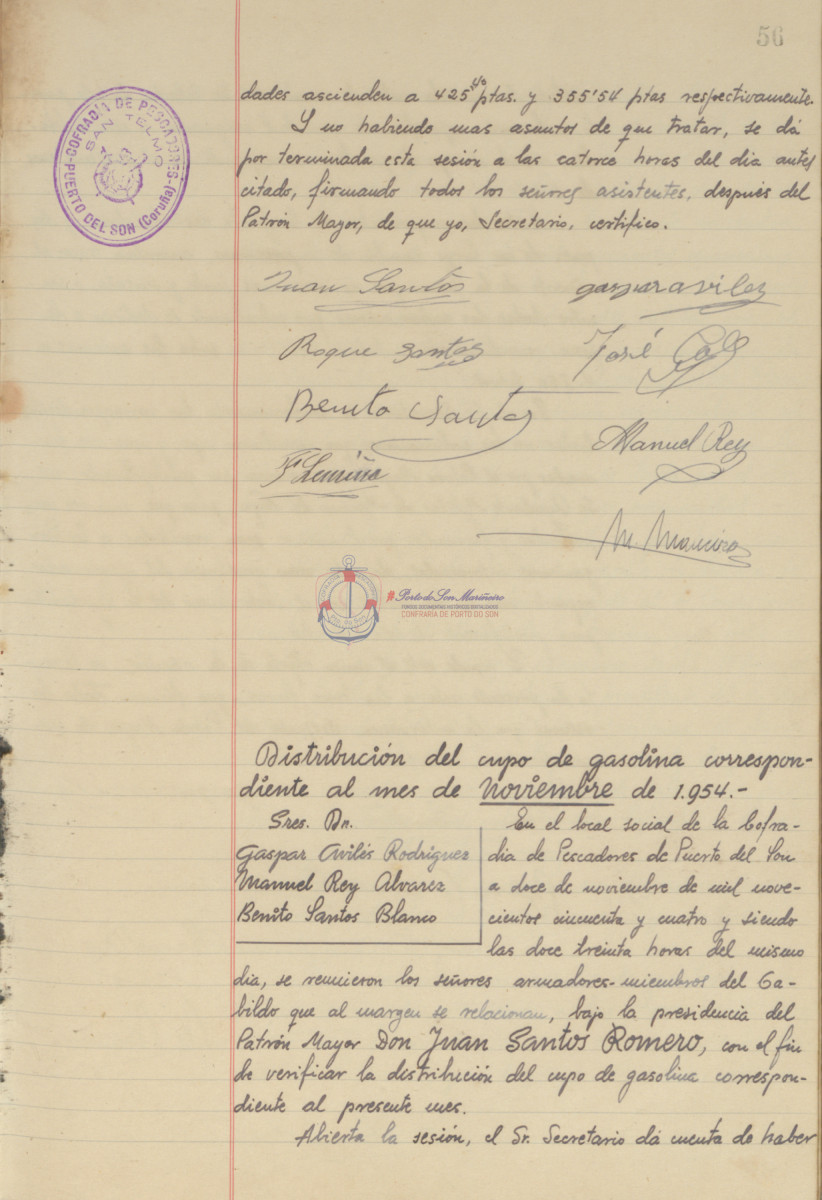 56
COFRADÍA DE PESCADORES
SAN TELMO
PUERTO DEL SON (Coruña)
dades ascienden a 425'40 ptas. y 355'54 ptas respectivamente.
Y no habiendo mas asuntos de que tratar, se dá
por terminada esta sesión a las catorce horas del dia antes
citado, firmando todos los señores asistentes, después del
Patrón Mayor, de que yo, Secretario, certifico.
Juan Santos
gaspar aviles
Roque Santos
José
Benito Santos
Manuel Rey
M. Maneiro
Porto do Son Mariñeiro
FONDOS DOCUMENTAIS HISTÓRICOS DIXITALIZADOS
CONFRARÍA DE PORTO DO SON
Distribución del cupo de gasolina correspon-
diente al mes de Noviembre de 1.954.-
Sres. Dn.
Gaspar Avilés Rodríguez
Manuel Rey Alvarez
Benito Santos Blanco
En el local social de la Cofra-
dia de Pescadores de Puerto del Son
a doce de noviembre de mil nove-
cientos cincuenta y cuatro y siendo
las doce treinta horas del mismo
dia, se reunieron los señores armadores-miembros del Ca-
bildo que al margen se relacionan, bajo la presidencia del
Patrón Mayor Don Juan Santos Romero, con el fin
de verificar la distribución del cupo de gasolina correspon-
diente al presente mes.
Abierta la sesión, el Sr. Secretario dá cuenta de haber